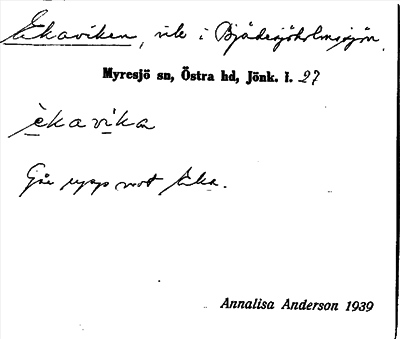 Ekaviken, vik i Bjädesjöholmssjön.
Myresjö sn, Östra hd, Jönk. l. 27
èkavika
Går upp mot Eka.
Annalisa Anderson 1939